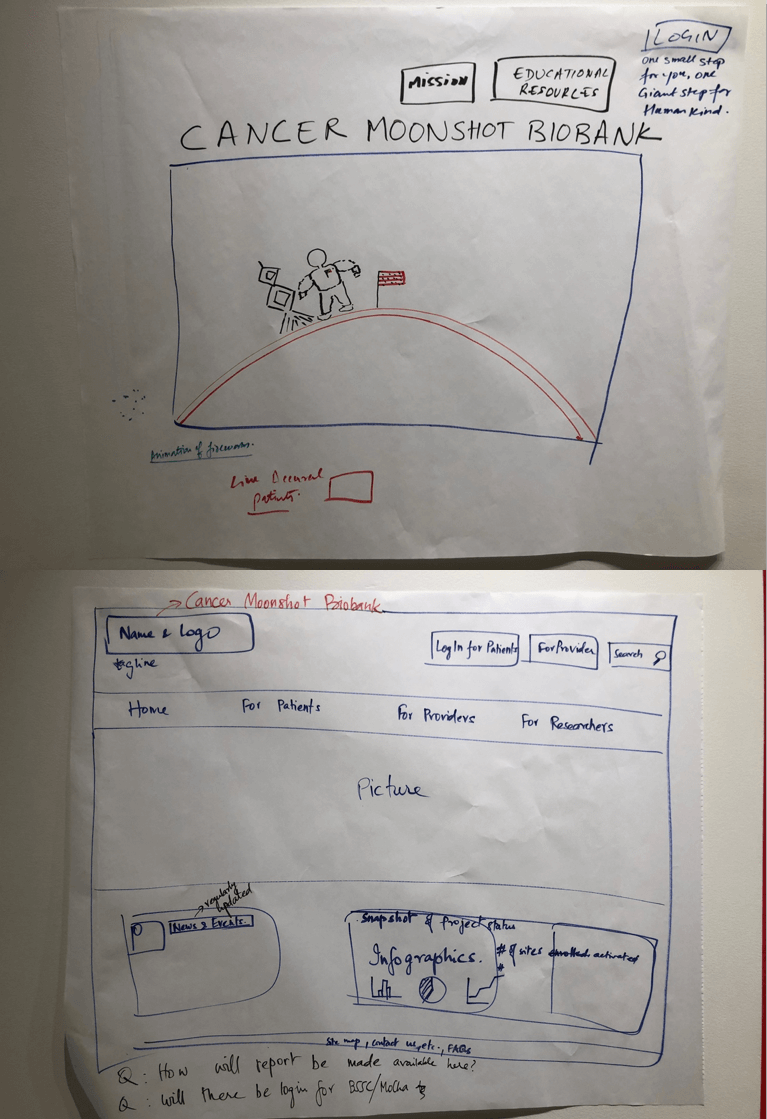 LOGIN
one small step
for you, one
Giant step for
Human kind.
MISSION
EDUCATIONAL
RESOURCES
CANCER MOONSHOT BIOBANK
Animation of fireworks.
Live Accrual
patients.
Cancer Moonshot Biobank
Name & Logo
tagline
Log In for Patients
For Provider
Search
Home
For Patients
For Providers
For Researchers
Picture
regularly
updated
News & Events.
Snapshot of project status
Infographics.
# of sites enrolled activated
#
Site map, contact us, etc., FAQs
Q: How will report be made available here?
Q: Will there be login for BSSC/MoCha